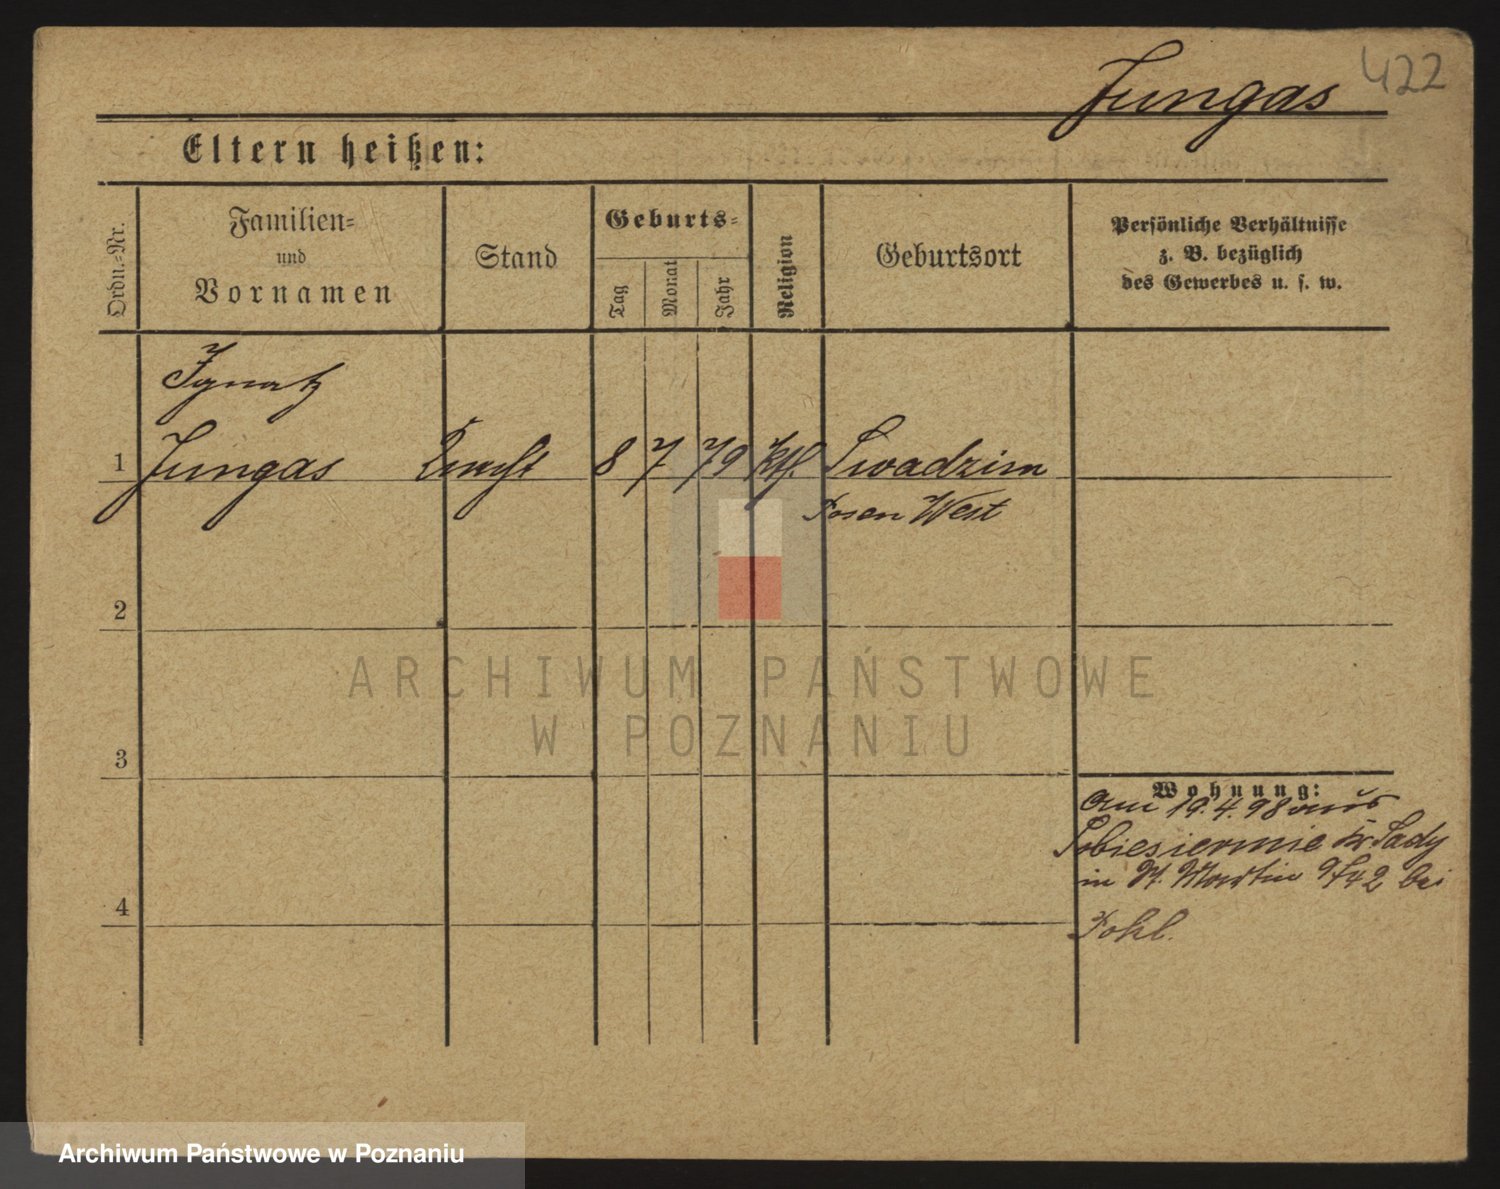 Jungas 422
Eltern heißen:
Ordn.-Nr.
Familien-
und
Vornamen
Stand
Geburts-
Tag
Monat
Jahr
Religion
Geburtsort
Persönliche Verhältnisse
z. B. bezüglich
des Gewerbes u. s. w.
Ignatz
1 Jungas Knecht 8 7 79 Kth. Swadzim
Posen West
2
3
4
Wohnung:
am 19.4.98 aus
Sobiesiernie Kr. Sady
in St. Martin 9/42 bei
Pohl.
ARCHIWUM PAŃSTWOWE
W POZNANIU
Archiwum Państwowe w Poznaniu